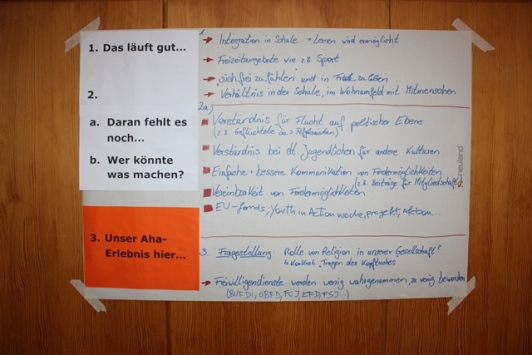 1. Das läuft gut...
2.
a. Daran fehlt es
noch...
b. Wer könnte
was machen?
3. Unser Aha-
Erlebnis hier...
1.
→ Integration in Schule → Lernen wird ermöglicht
→ Freizeitangebote wie z.B. Sport
→ "sich frei zu fühlen" und in Friede zu leben
→ Verhältnis in der Schule, im Wohnumfeld mit Mitmenschen
2a)
Verständnis für Flucht auf politischer Ebene
Verständnis bei dt. Jugendlichen für andere Kulturen
Einfache + bessere Kommunikation von Fördermöglichkeiten
(z.B. Beiträge für Mitgliedschaft)
Vereinbarkeit von Fördermöglichkeiten
EU-fonds, Youth in Action woche, projekt,
neuland
3. Fragestellung: Rolle von Religion in unserer Gesellschaft?
↳ Konkret: Tragen des Kopftuches
→ Freiwilligendienste werden wenig wahrgenommen, zu wenig beworben